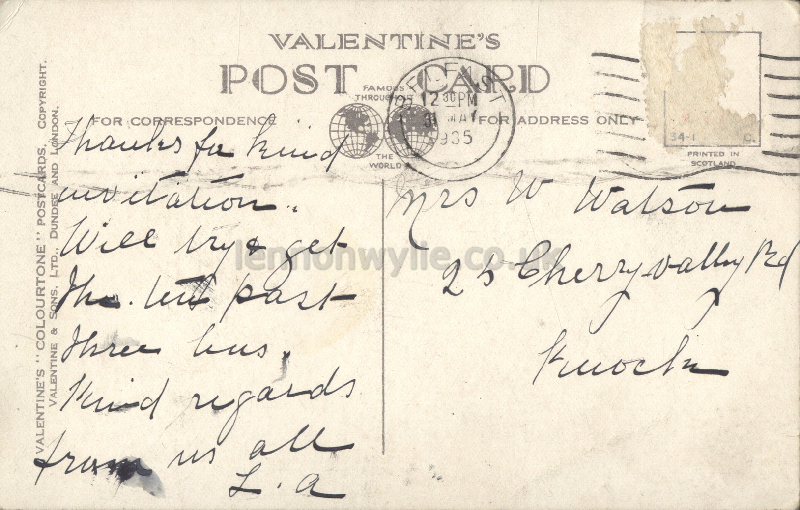 VALENTINE'S
POST CARD
FAMOUS
THROUGHOUT
THE
WORLD
FOR CORRESPONDENCE
FOR ADDRESS ONLY
12 30 PM
31 MAY
1935
34-1 C.
PRINTED IN
SCOTLAND
VALENTINE'S "COLOURTONE" POSTCARDS. COPYRIGHT.
VALENTINE & SONS, LTD. DUNDEE AND LONDON.
Thanks for kind
invitation.
Will try & get
the ten past
three bus.
Kind regards
from us all
L. A
Mrs W Watson
25 Cherryvalley Rd
Knock
lennonwylie.co.uk